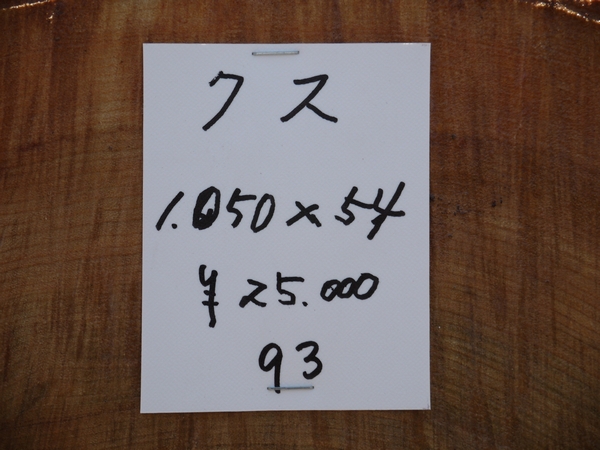 クス
1.050×54
¥25.000
93